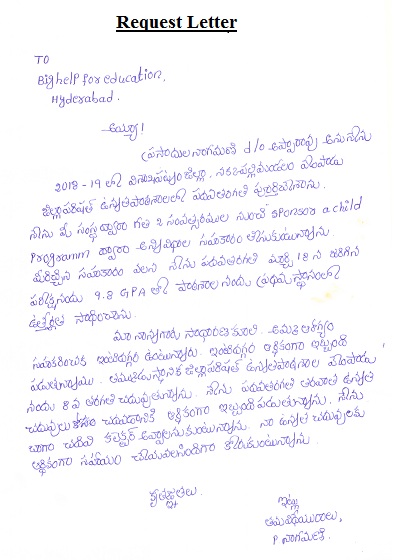 Request Letter
TO
Big help for education,
Hyderabad.
అయ్యా!
ప్రసాదుల నాగమణి d/o అప్పారావు అను నేను
2018-19 లో విశాఖపట్నం జిల్లా, నక్కపల్లి మండలం
జిల్లా పరిషత్ ఉన్నత పాఠశాలలో పదవ తరగతి పూర్తిచేశాను.
నేను మీ సంస్థ ద్వారా గత 2 సంవత్సరముల నుంచి sponsor a child
Programm ద్వారా అన్ని విధాల సహకారం తీసుకుంటున్నాను.
మీరిచ్చిన సహకారం వలన నేను పదవతరగతి మార్చి 18 న జరిగిన
పరీక్షనందు 9.8 GPA తో పాఠశాల నందు ప్రథమ స్థానంలో
ఉత్తీర్ణత సాధించాను.
మా నాన్నగారు సాధారణ కూలీ. అమ్మ ఆరోగ్యం
సహకరించక ఇంటిదగ్గర ఉంటున్నారు. ఇంటిదగ్గర ఆర్థికంగా ఇబ్బంది
పడుతున్నాము. తమ్ముడు స్థానిక జిల్లాపరిషత్ ఉన్నతపాఠశాల
నందు 8వ తరగతి చదువుతున్నాడు. నేను పదవతరగతి తరవాత ఉన్నత
చదువులు కోసం చదవడానికి ఆర్థికంగా ఇబ్బంది పడుతున్నాను. నేను
బాగా చదివి కలెక్టర్ అవ్వాలనుకుంటున్నాను. నా ఉన్నత చదువులకు
ఆర్థికంగా సహాయం చేయవలసిందిగా కోరుకుంటున్నాను.
కృతజ్ఞతలు.
ఇట్లు
తమ విధేయురాలు,
P నాగమణి.